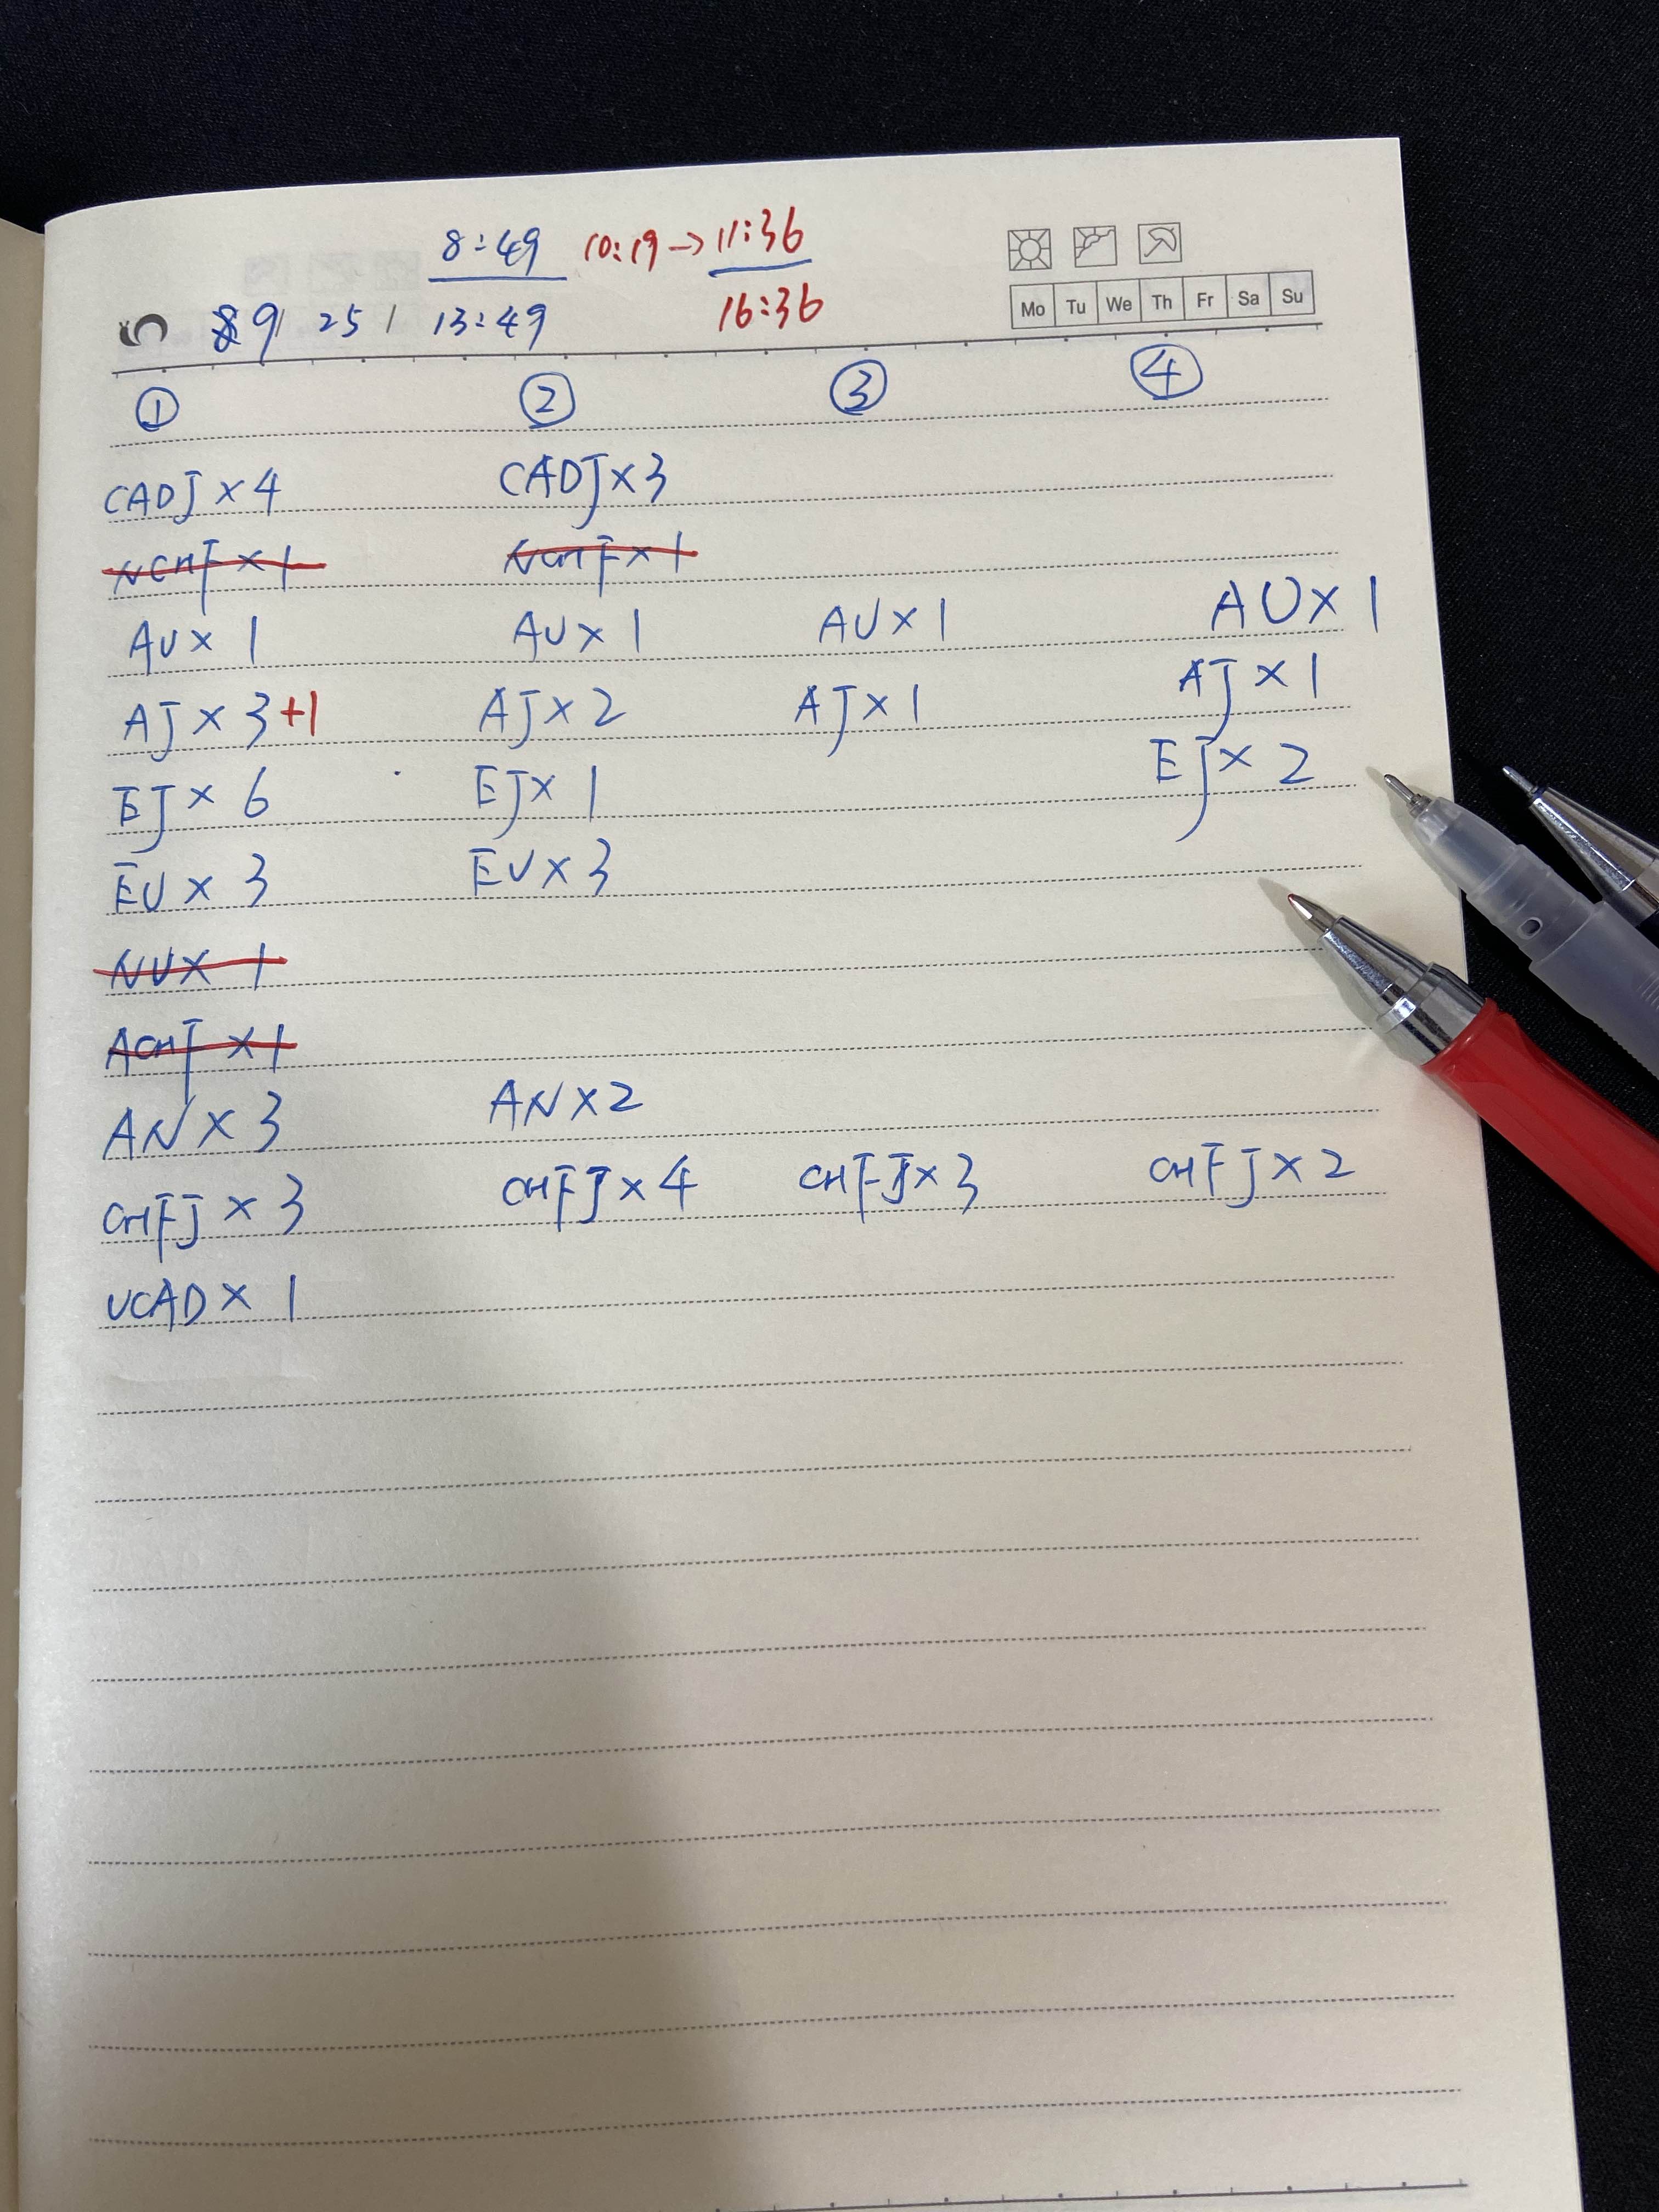 8:49 10:19→11:36
9/ 25 / 13:49 16:36
Mo Tu We Th Fr Sa Su
① ② ③ ④
CADJ×4 CADJ×3
NCHF×1 NCHF×1
AU×1 AU×1 AU×1 AU×1
AJ×3+1 AJ×2 AJ×1 AJ×1
EJ×6 EJ×1 EJ×2
EU×3 EU×3
NU×1
ACHF×1
AN×3 AN×2
CHFJ×3 CHFJ×4 CHFJ×3 CHFJ×2
UCAD×1